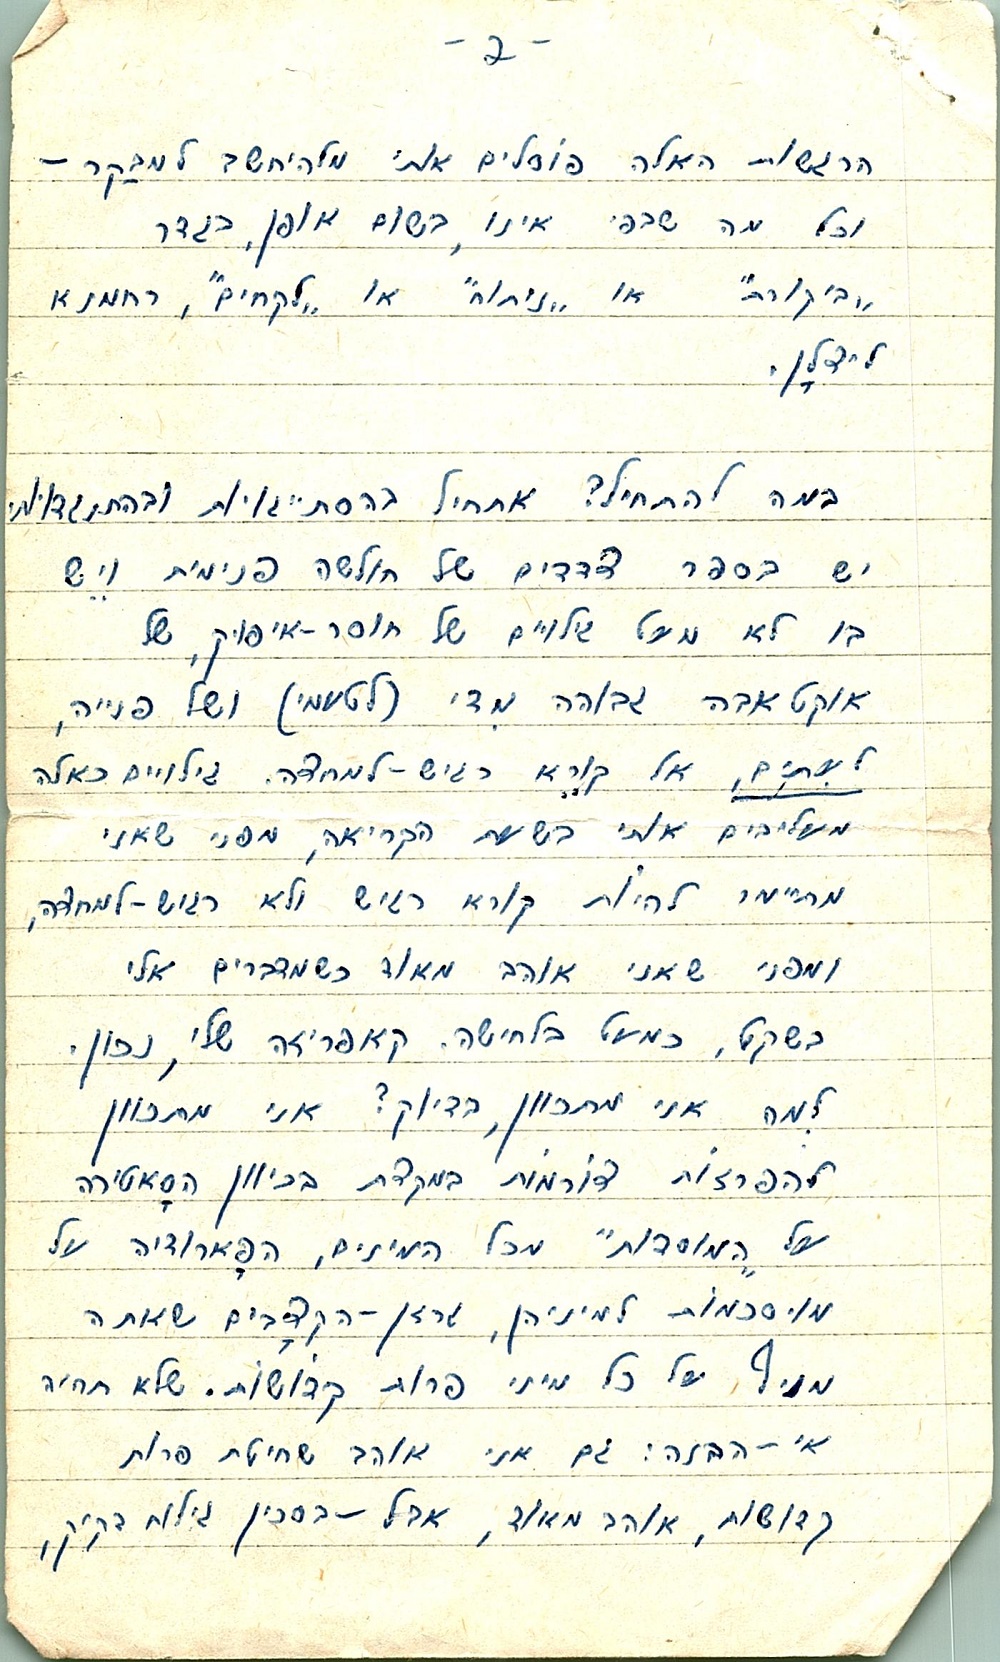 - 2 -
הרגשות האלה פוסלים אותי מלהיחשב למבַקר –
וכל מה שבפי אינו, בשום אופן, בגדר
„ביקורת” או „ניתוח” או „לקחים”, רחמנא
ליצלָן.
במה להתחיל? אתחיל בהסתייגויות ובהתנגדויות.
יש בספר צדדים של חולשה פנימית ויֵש
בו לא מעט גילויים של חוסר-איפוק, של
אוקטאבה גבוהה מִדי (לטעמי) ושל פנייה,
לעִתים, אל קורֵא רגיש-למחצה. גילויים כאלה
מעליבים אותי בשעת הקריאה, מפני שאני
מתיימר להיות קורא רגיש ולא רגיש-למחצה,
ומפני שאני אוהב מאוד כשמדברים אלי
בשקט, כמעט בלחישה. קאפריזה שלי, נכון.
לְמה אני מתכוון, בדיוק? אני מתכוון
להפרזות צורמות במקצת בכיוון הסָאטירה
על „המוסדות” מכל המינים, הפָארודיה על
מוסכמות למיניהן, גרזן-הקצָבים שאתה
מניף על כל מיני פרות קדושות. שלא תהיה
אי-הבנה: גם אני אוהב שחיטת פרות
קדושות, אוהב מאוד, אבל – בסכין גילוח דקיק,